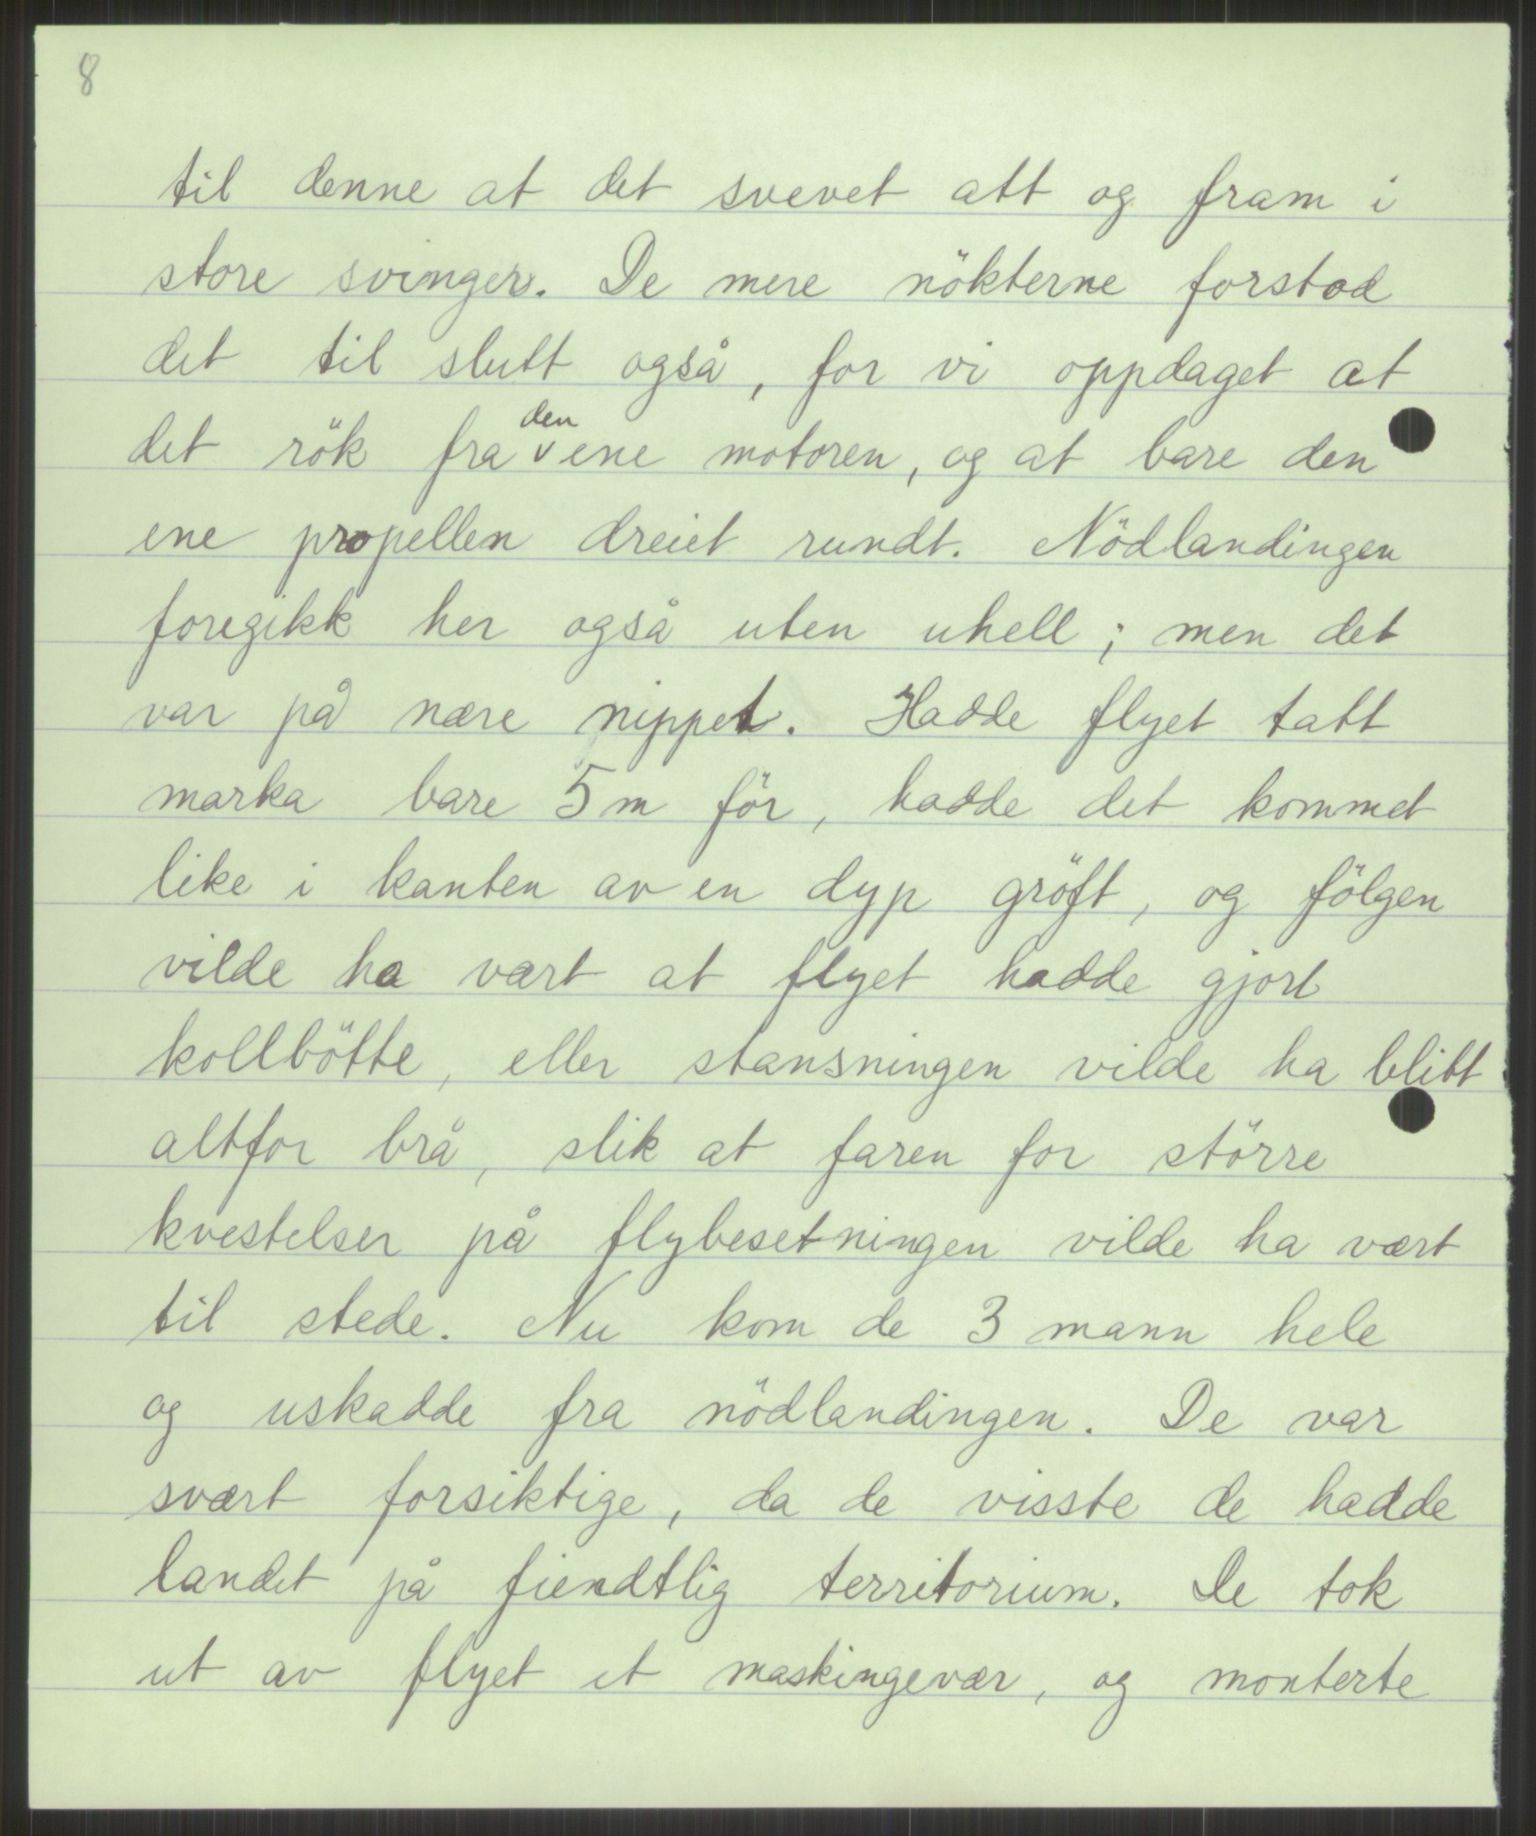 8
til denne at det svevet att og fram i
store svinger. De mere nökterne forstod
det til slutt også, for vi oppdaget at
det rök fra den ene motoren, og at bare den
ene propellen dreiet rundt. Nödlandingen
foregikk her også uten uhell; men det
var på nære nippet. Hadde flyet tatt
marka bare 5 m för, hadde det kommet
like i kanten av en dyp gröft, og fölgen
vilde ha vært at flyet hadde gjort
kollbötte, eller stansningen vilde ha blitt
altfor brå, slik at faren for större
kvestelser på flybesetningen vilde ha vært
til stede. Nu kom de 3 mann hele
og uskadde fra nödlandingen. De var
svært forsiktige, da de visste de hadde
landet på fiendtlig territorium. De tok
ut av flyet et maskingevær, og monterte